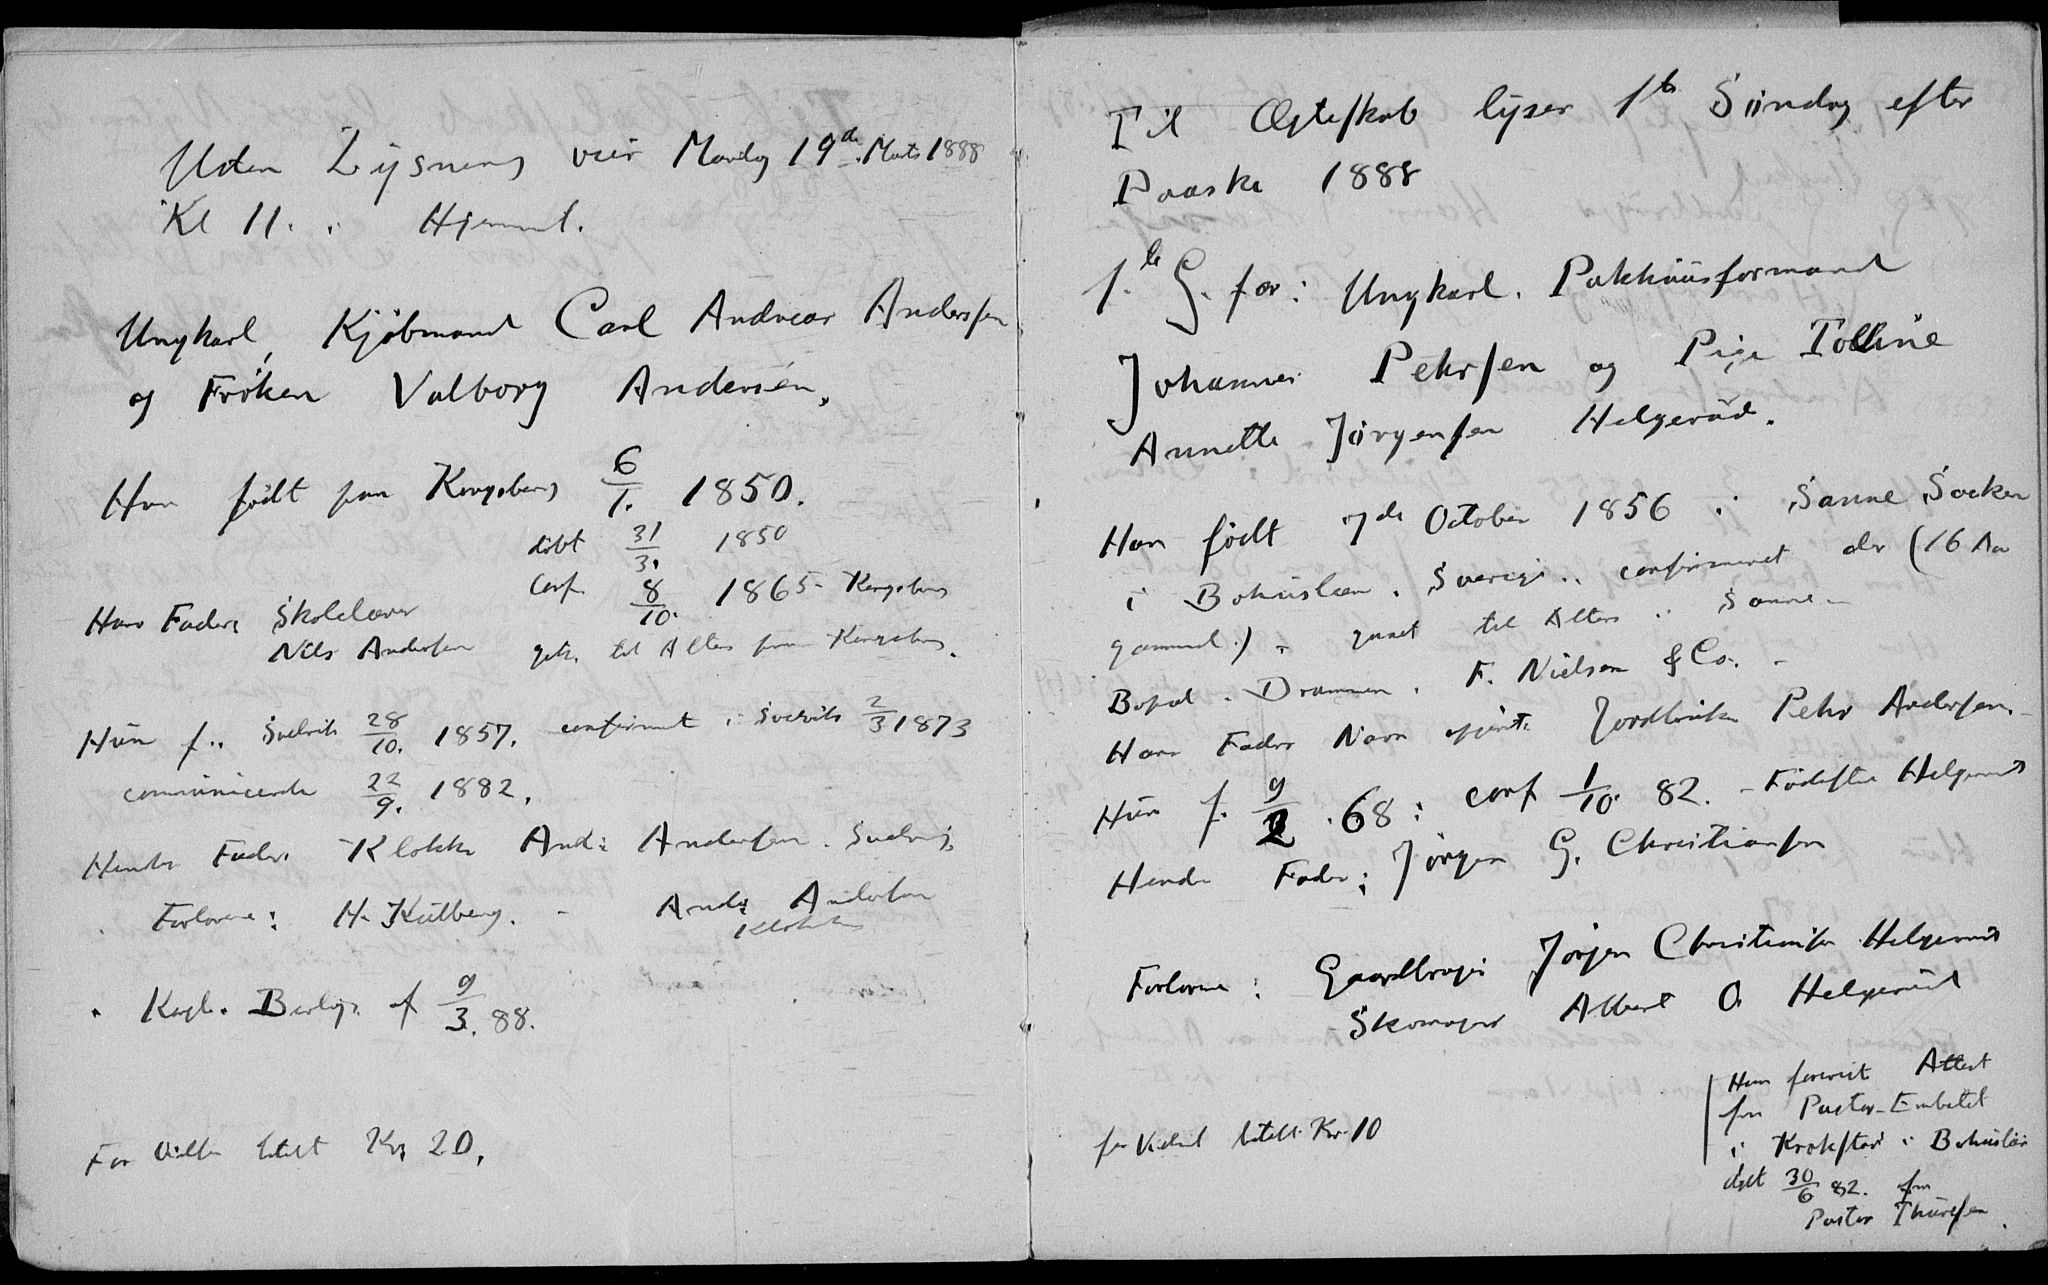 Uden Lysning vier Mandag 19de Marts 1888
Kl 11. i Hjemmet.
Ungkarl, Kjøbmand Carl Andreas Andersen
og Frøken Valborg Andersen.
Han født paa Kongsberg 6/1. 1850.
døbt 31/3. 1850
Conf. 8/10. 1865 - Kongsberg
Hans Fader: Skolelærer
Nils Andersen gik til Alters paa Kongsberg.
Hun f. i Svelvik 28/10. 1857. confirmert i Svelvik 2/3 1873
communicerede 22/9. 1882.
Hendes Fader: Klokker And: Andersen. Svelvig
Forlovere: H. Kulberg. - And: Andersen
Klokker
Kngl. Bevlg. af 9/3. 88.
For Vielsen betalt Kr. 20.
Til Ægteskab lyses 1ste Søndag efter
Paaske 1888
1ste G. for: Ungkarl. Pakhuusformand
Johannes Pehrsen og Pige Tolline
Annette Jørgensen Helgerud.
Han født 7de October 1856 i Sanne Socken
i Bohuslæn. Sverige. confirmeret der (16 Aar
gammel.) gaaet til Alters i Sanne -
Bopæl. Drammen. F. Nielsen & Co. -
Hans Faders Navn opgivet: Jordbruker Pehr Andersen. -
Hun f. 9/2. 68: conf 1/10. 82. - Fødested Helgerud
Hendes Fader: Jørgen G. Christiansen
Forlovere: Gaardbruger Jørgen Christiansen Helgerud
Skomager Albert O. Helgerud
Han forevist Attest
fra Pastor-Embetet
i Krokstad i Bohuslän
dat 30/6 82. fra
Pastor Thuresen.
for Vielsel betalt Kr. 10